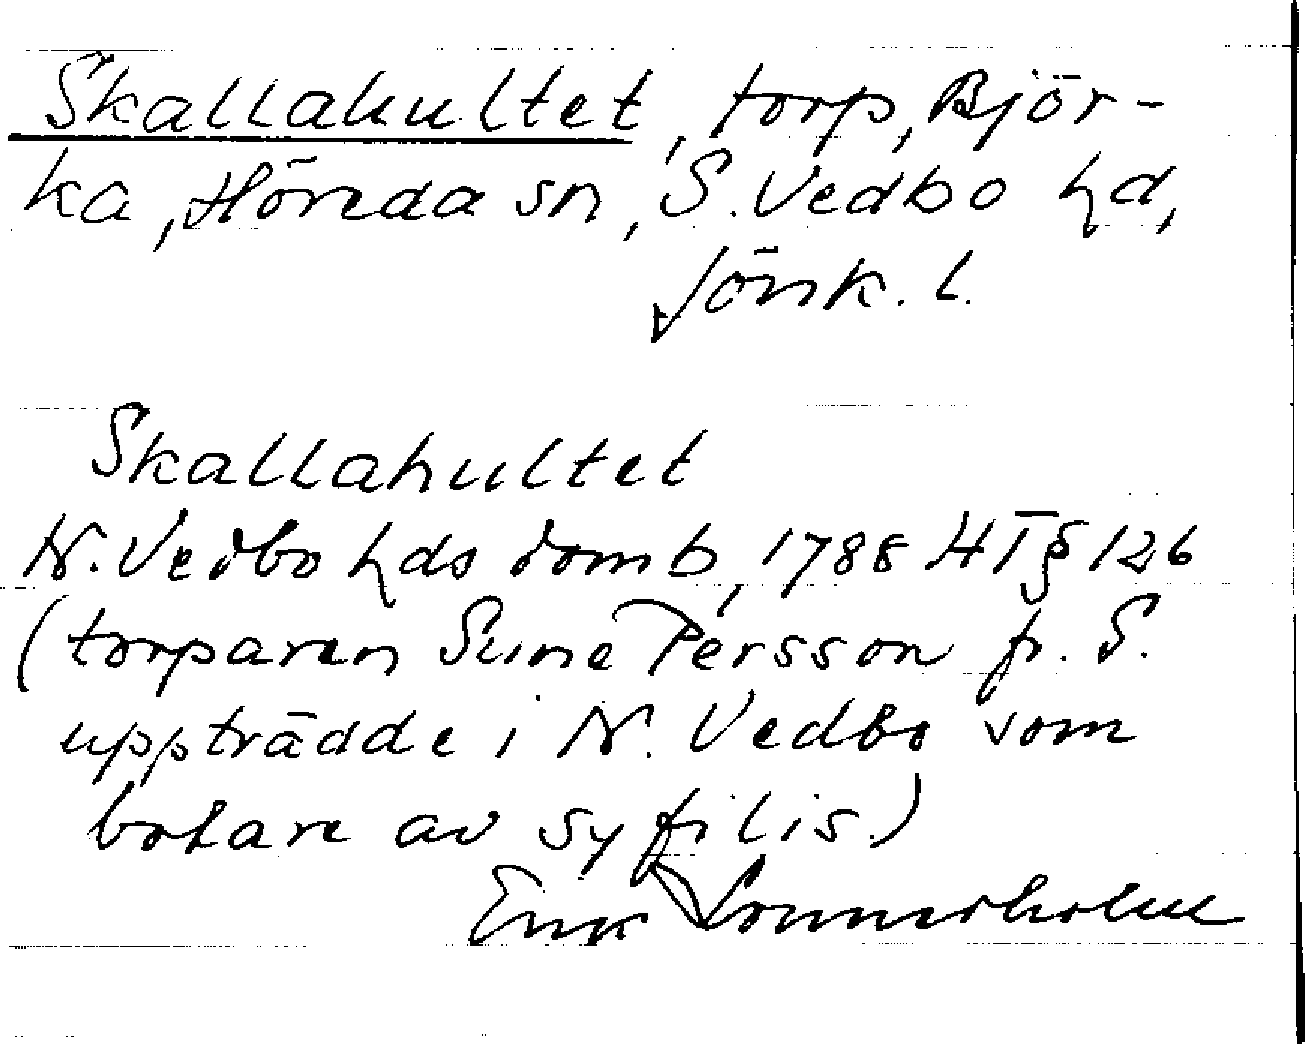 Skallahultet, torp, Björ-
ka, Höreda sn, S. Vedbo hd,
Jönk. l.
Skallahultet
N. Vedbo hds domb, 1788 HT § 126
(torparen Sune Persson fr. S.
uppträdde i N. Vedbo som
botare av syfilis.)
Erik